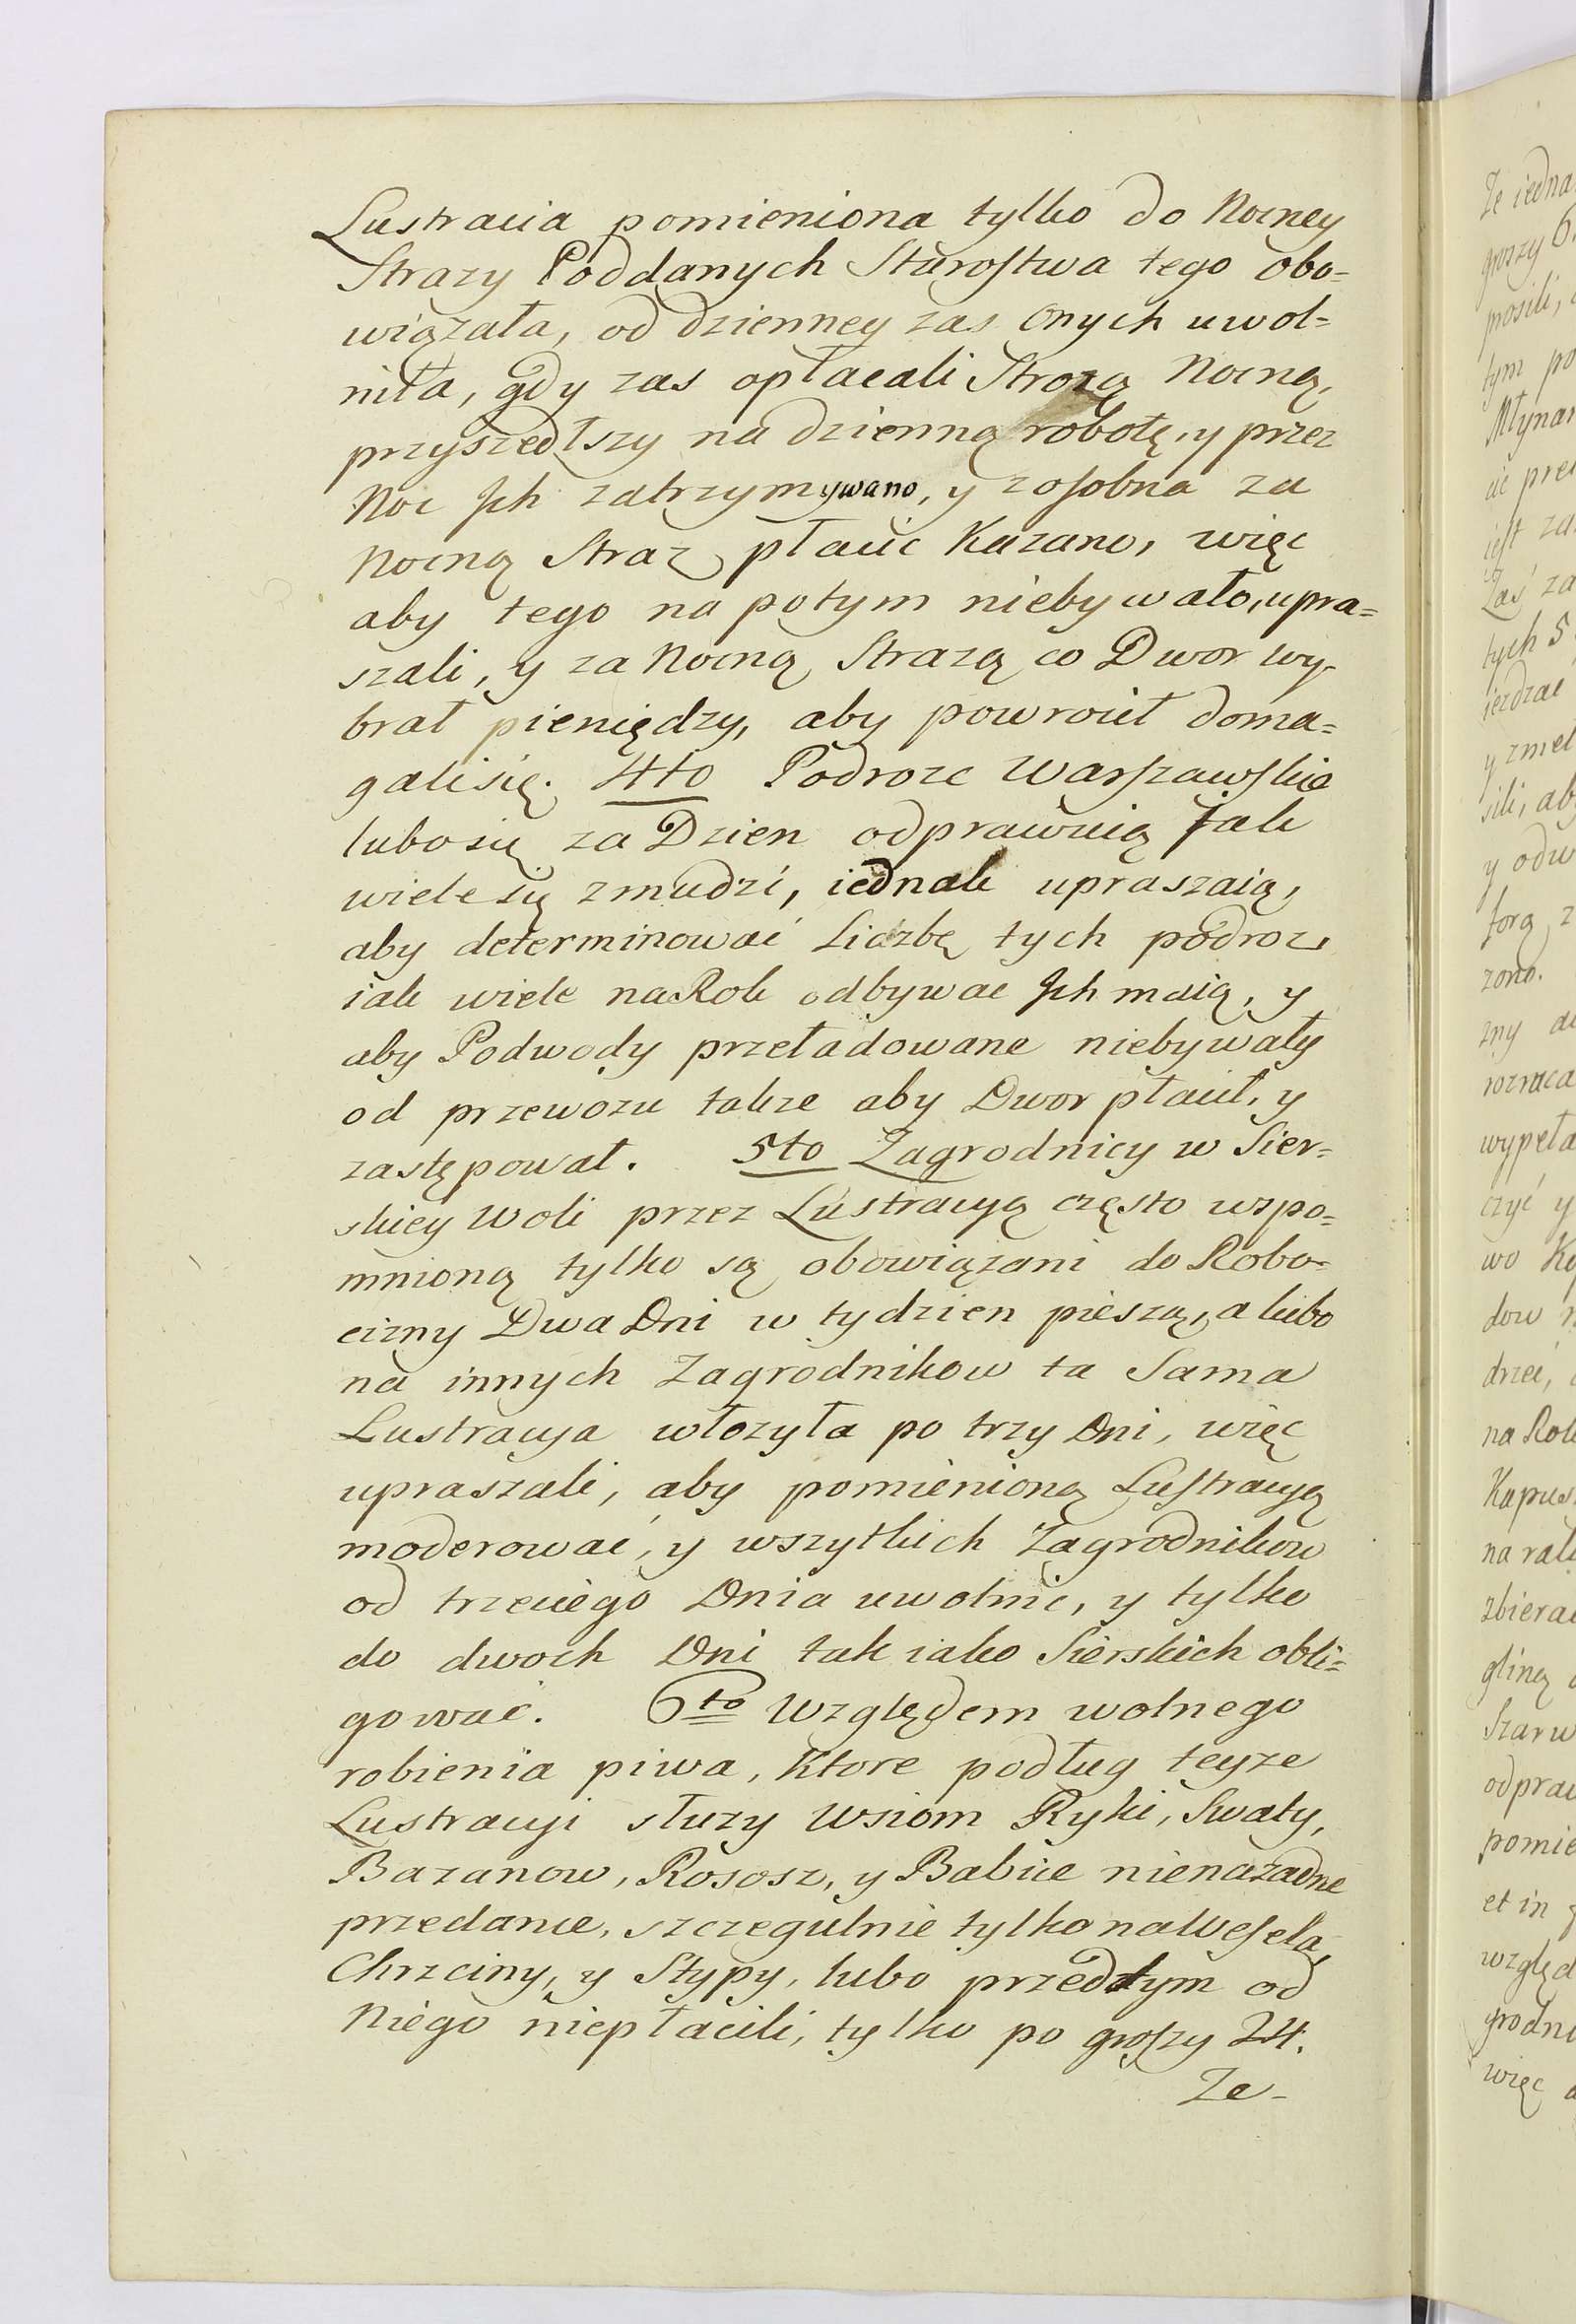 Lustracia pomieniona tylko do Nocney
Strazy Poddanych Starostwa tego obo=
wiązała, od dzienney zas onych uwol=
niła, gdy zas opłacali Strozą Nocną,
przyszedłszy na dzienną robotę, y przez
Noc Jch zatrzymywano, y zosobna za
Nocną Straz płacic Kazano, więc
aby tego na potym niebywało, upra=
szali, y za Nocną Strazą co Dwor wy-
brał pieniędzy, aby powrocił doma=
gali się. 4to Podroze Warszawskie
lubo się za Dzien odprawuią Jak
wiele się zmudzi, iednak upraszaią,
aby determinować Liczbę tych podroz,
iak wiele na Rok odbywac Jch maią, y
aby Podwody przeładowane niebywały
od przewozu takze aby Dwor płacił, y
zastępował. 5to Zagrodnicy w Sier=
skiey Woli przez Lustracyą często wspo=
mnioną tylko są obowiązani do Robo=
cizny Dwa Dni w tydzien pieszą, a lubo
na innych Zagrodnikow ta Sama
Lustracya włozyła po trzy Dni, więc
upraszali, aby pomienioną Lustracyą
moderować, y wszytkich Zagrodnikow
od trzeciego Dnia uwolnic, y tylko
do dwoch Dni tak iako Sierskich obli=
gować. 6to Względem wolnego
robienia piwa, Ktore podług teyze
Lustracyi słuzy Wsiom Ryki, Swaty,
Bazanow, Rososz, y Babice nienazadne
przedanie, szczegulnie tylko na Wesela,
Chrzciny, y Stypy, lubo przedtym od
Niego niepłacili, tylko po groszy 24.
Ze-
Ze iedna
groszy 6.
posili,
tym po
Młynar
iest za
Zaś za
tych 5
iezdzać
y zmel
sili, ab
y odw
forą z
zono.
wypeła
czyć y
wo
dow
drzeć,
na Rok
Kapus
na
zbierac
gliną
Szarw
odpraw
pomie
et in
względ
grodni
więc a